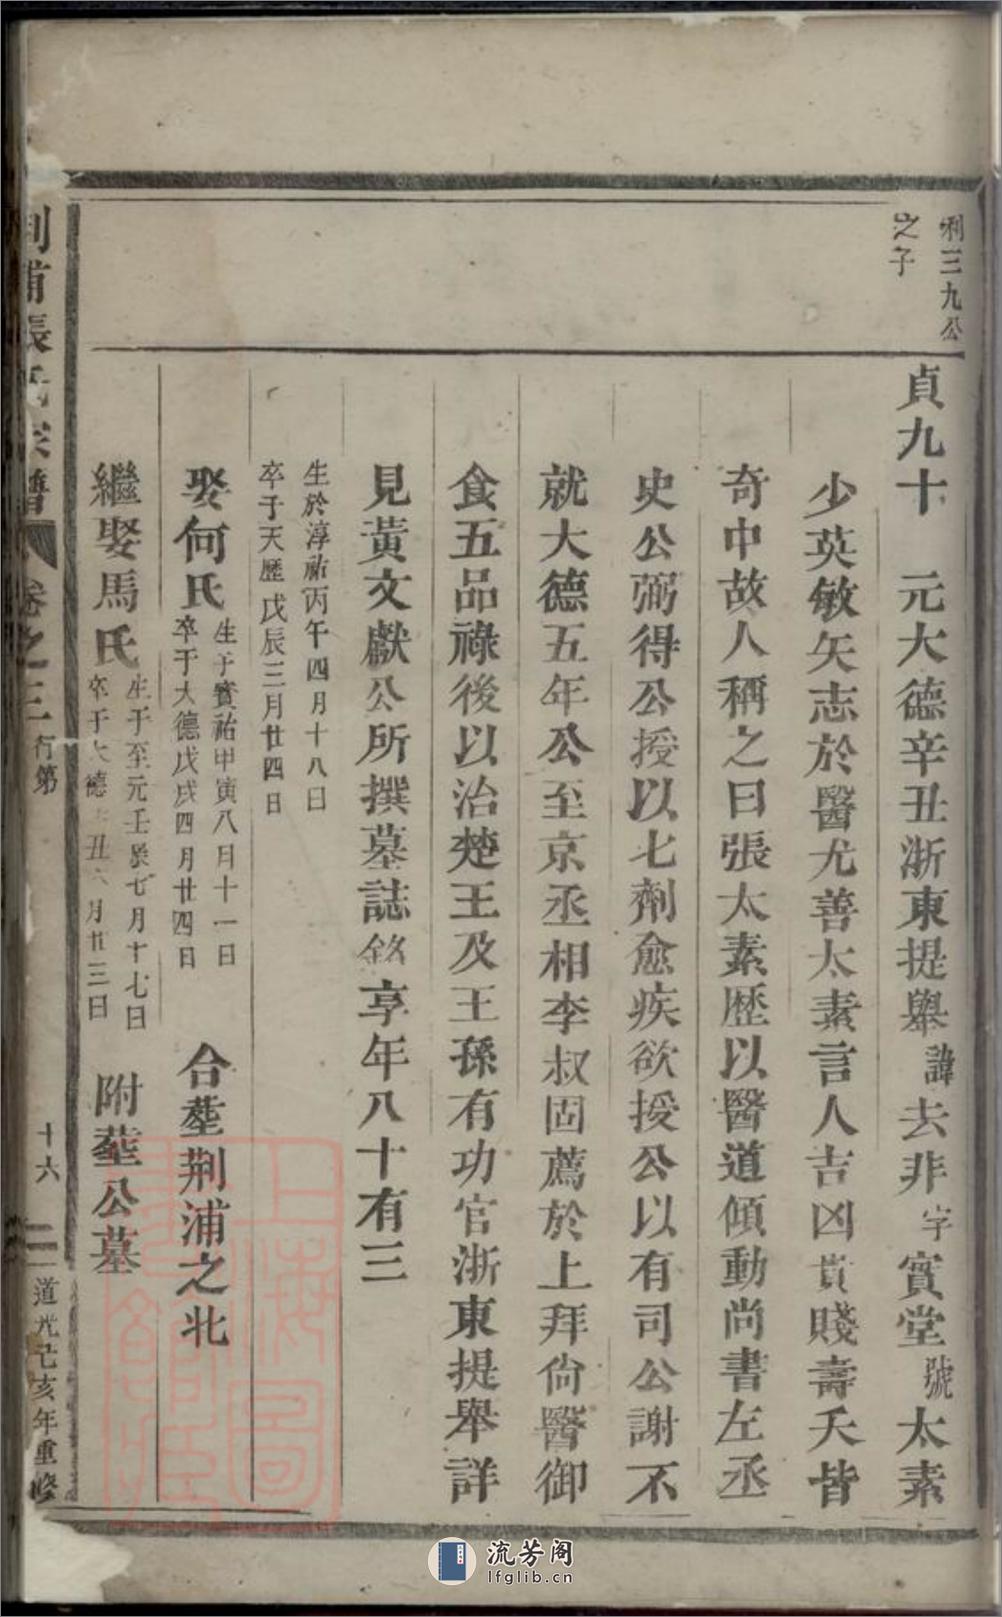 利三九公
之子
貞九十　元大德辛丑浙東提舉諱去非字實堂號太素
少英敏矢志於醫尤善太素言人吉凶貴賤壽夭皆
奇中故人稱之曰張太素歷以醫道傾動尚書左丞
史公弼得公授以七劑愈疾欲授公以有司公謝不
就大德五年公至京丞相李叔固薦於上拜尚醫御
食五品祿後以治楚王及王孫有功官浙東提舉詳
見黃文獻公所撰墓誌銘享年八十有三
生於淳祐丙午四月十八日
卒于天歷戊辰三月廿四日
娶何氏
生于寶祐甲寅八月十一日
卒于大德戊戌四月廿四日
合塟荆浦之北
繼娶馬氏
生于至元壬辰七月十七日
卒于大德丑六月廿三日
附塟公墓
荆浦張氏宗譜　卷之三　行第　十六　道光己亥年重修
上海圖書館藏
流芳阁
lfglib.cn